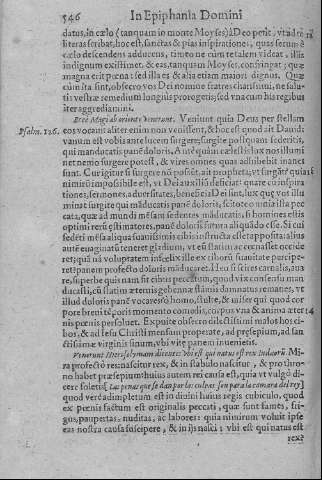 546 In Epiphania Domini
datus, in cælo (tanquam in monte Moyses) à Deo petit, vt
literas scribat, hoc est, sanctas & pias inspirationes, quas secum è
cælo descendens adducens, timeo ne cùm te talem videat, illis
indignum existimet, & eas, tanquam Moyses, confringat; quæ
magna erit pœna: sed illa es & alia etiam maiori dignus. Quæ
cùm ita sint, obsecro vos Dei nomine fratres charissimi, ne salu
ti vestræ remedium longiùs prorogetis; sed vna cum his regibus
iter aggrediamini.
Ecce Magi ab oriente venerunt. Veniunt quia Deus per stellam
Psalm. 126. eos vocauit aliter enim non venissent, & hoc est quod ait Dauid:
vanum est vobis ante lucem surgere, surgite postquam sederitis,
qui manducatis panē doloris. Antè quàm cælestis lux nos illumi
net nemo surgere potest, & vires omnes quas adhibebit inanes
sunt. Cur igitur si surgere nō possūt, ait propheta, vt surgāt? quia
nimirū impossibile est, vt Dei auxiliū deficiat: quare cū inspira
tiones, sermones, aduersitates, beneficia Dei sint, lux quę vos illu
minat surgite qui māducatis panē doloris, scitote omnia illa pec
cata, quæ ad mundi mēsam sedentes māducatis, si homines estis
optimi rerū estimatores, panē doloris futura aliquādo esse. Si cui
sedēti mēsa aliqua suauissimis cibis instructa esset apposita: alius
autē euaginatū teneret gladium, vt eū statim ac comaisset occide
ret; quā nā voluptatem infœlix ille ex ciborū suauitate percipe-
ret? panem profecto doloris māducaret. Heu si scires carnalis, aua
re, superbe quis nam sit cibus peccatum, quod vix consensu man
ducasti, cū statim æternis gehennæ flāmis damnatus remanes, vt
illud doloris panē vocares! ô homo, stulte, & miser qui quod cor
pore breui tē poris momento comodis, corpus vna & anima æter
nis pœnis persoluet. Expuite obsecro dilectissimi malos hos ci-
bos, & ad Iesu Christi mensam properate, ad præsepium, ad san
ctissimæ virginis sinum, vbi vitæ panem inuenietis.
Venerunt Hierosolymam dicentes: Vbi est qui natus est rex Iudæorū. Mi-
ra profectò res: nascitur rex, & in stabulo nascitur, & pro thro-
no habet præsepium huius autem rei causa est, quia vt vulgò di-
cere soletis [Las penas que se dan por las culpas son para la camara del rey]
quod verdadimpletum est in diuini huius regis cubiculo, quod
ex pœnis factum est originalis peccati, quæ sunt fames, fri-
gus, paupertas, nuditas, ac labores: quia nimirum voluit ipse
eas nostra causa suscipere, & in ijs nasci: vbi est qui natus est
rex?